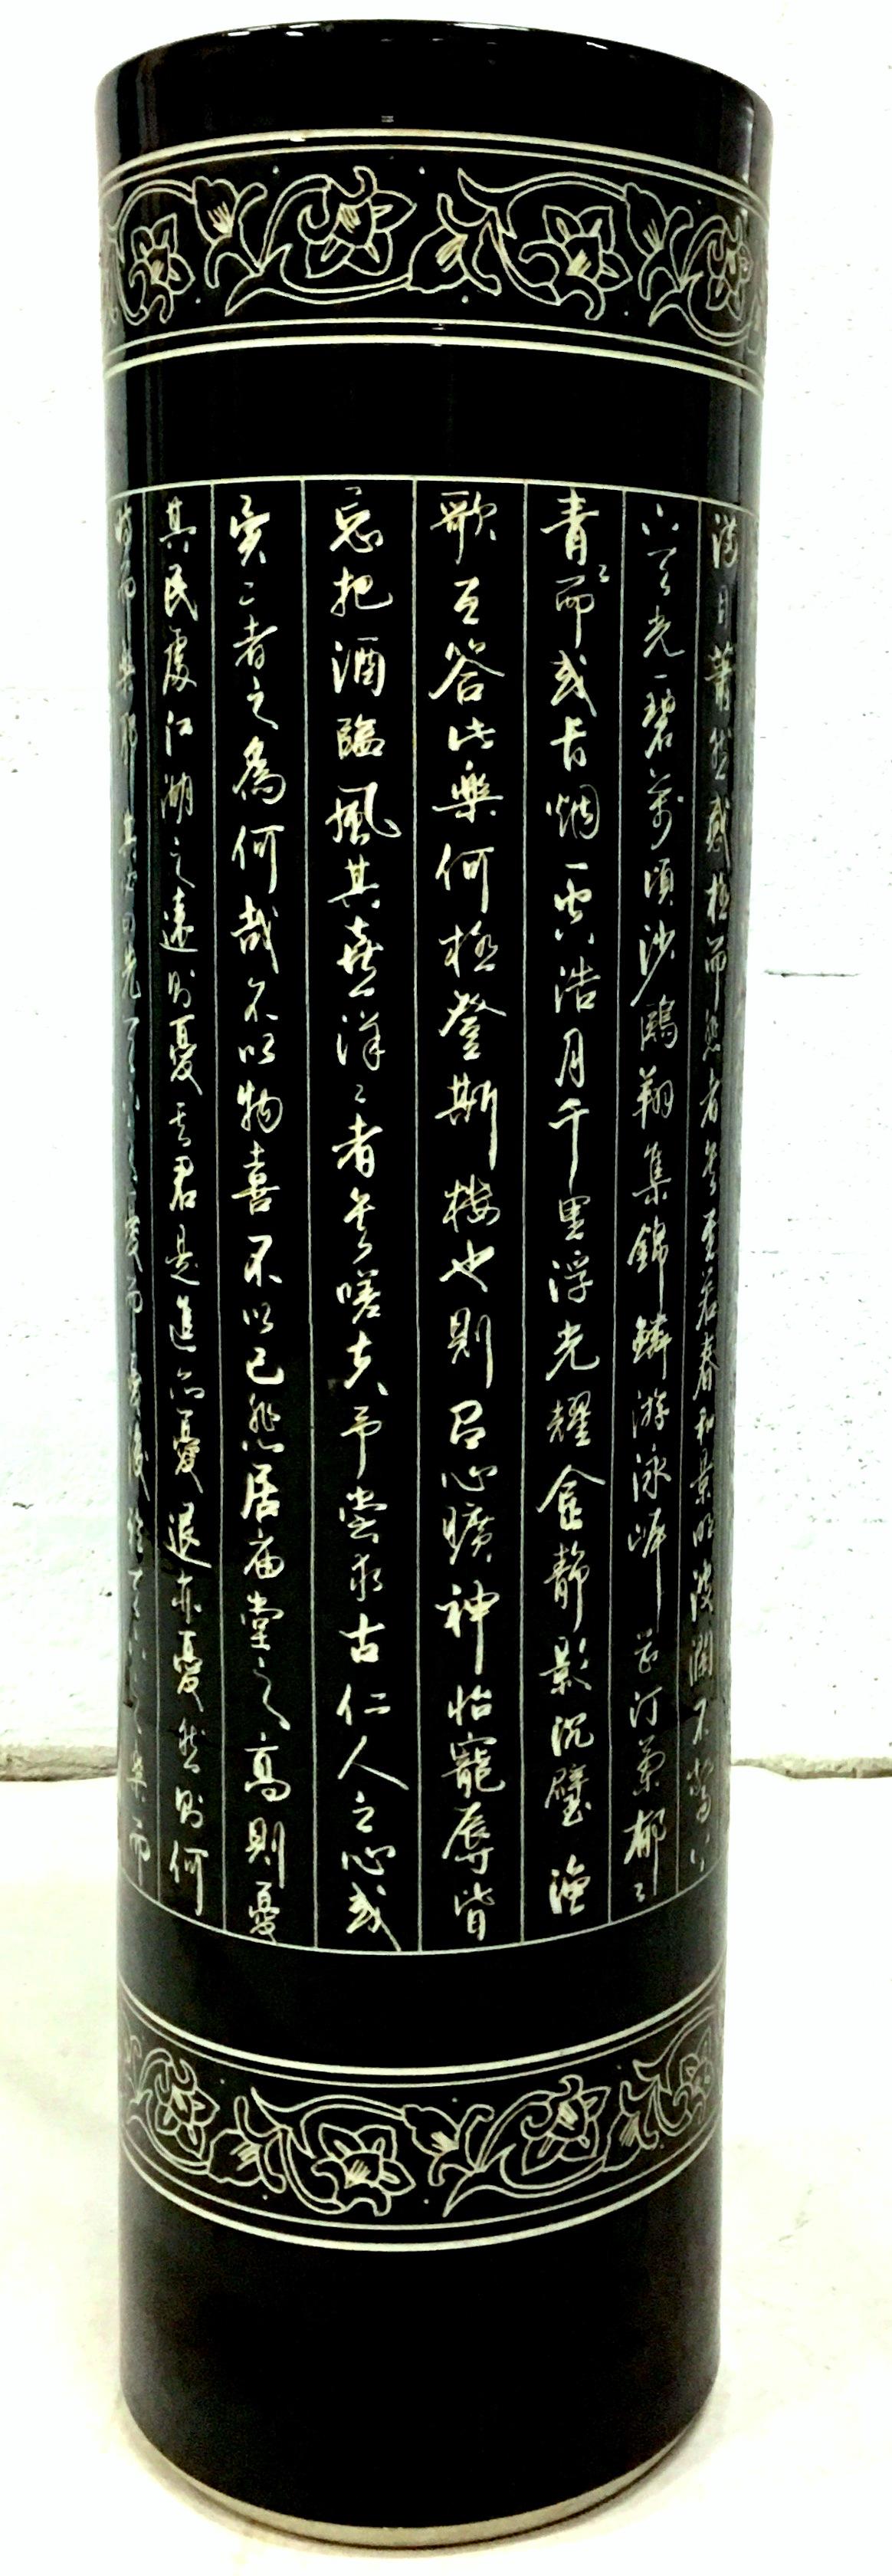 滿目蕭然感極而悲者矣至若春和景明波瀾不驚上
下天光一碧萬頃沙鷗翔集錦鱗游泳岸芷汀蘭郁〻
青〻而或長烟一空浩月千里浮光耀金靜影沉璧漁
歌互答此樂何極登斯樓也則有心曠神怡寵辱皆
忘把酒臨風其喜洋〻者矣嗟夫予嘗求古仁人之心或
異二者之為何哉不以物喜不以己悲居庙堂之高則憂
其民處江湖之遠則憂其君是進亦憂退亦憂然則何
時而樂耶其必曰先天下之憂而憂後天下之樂而